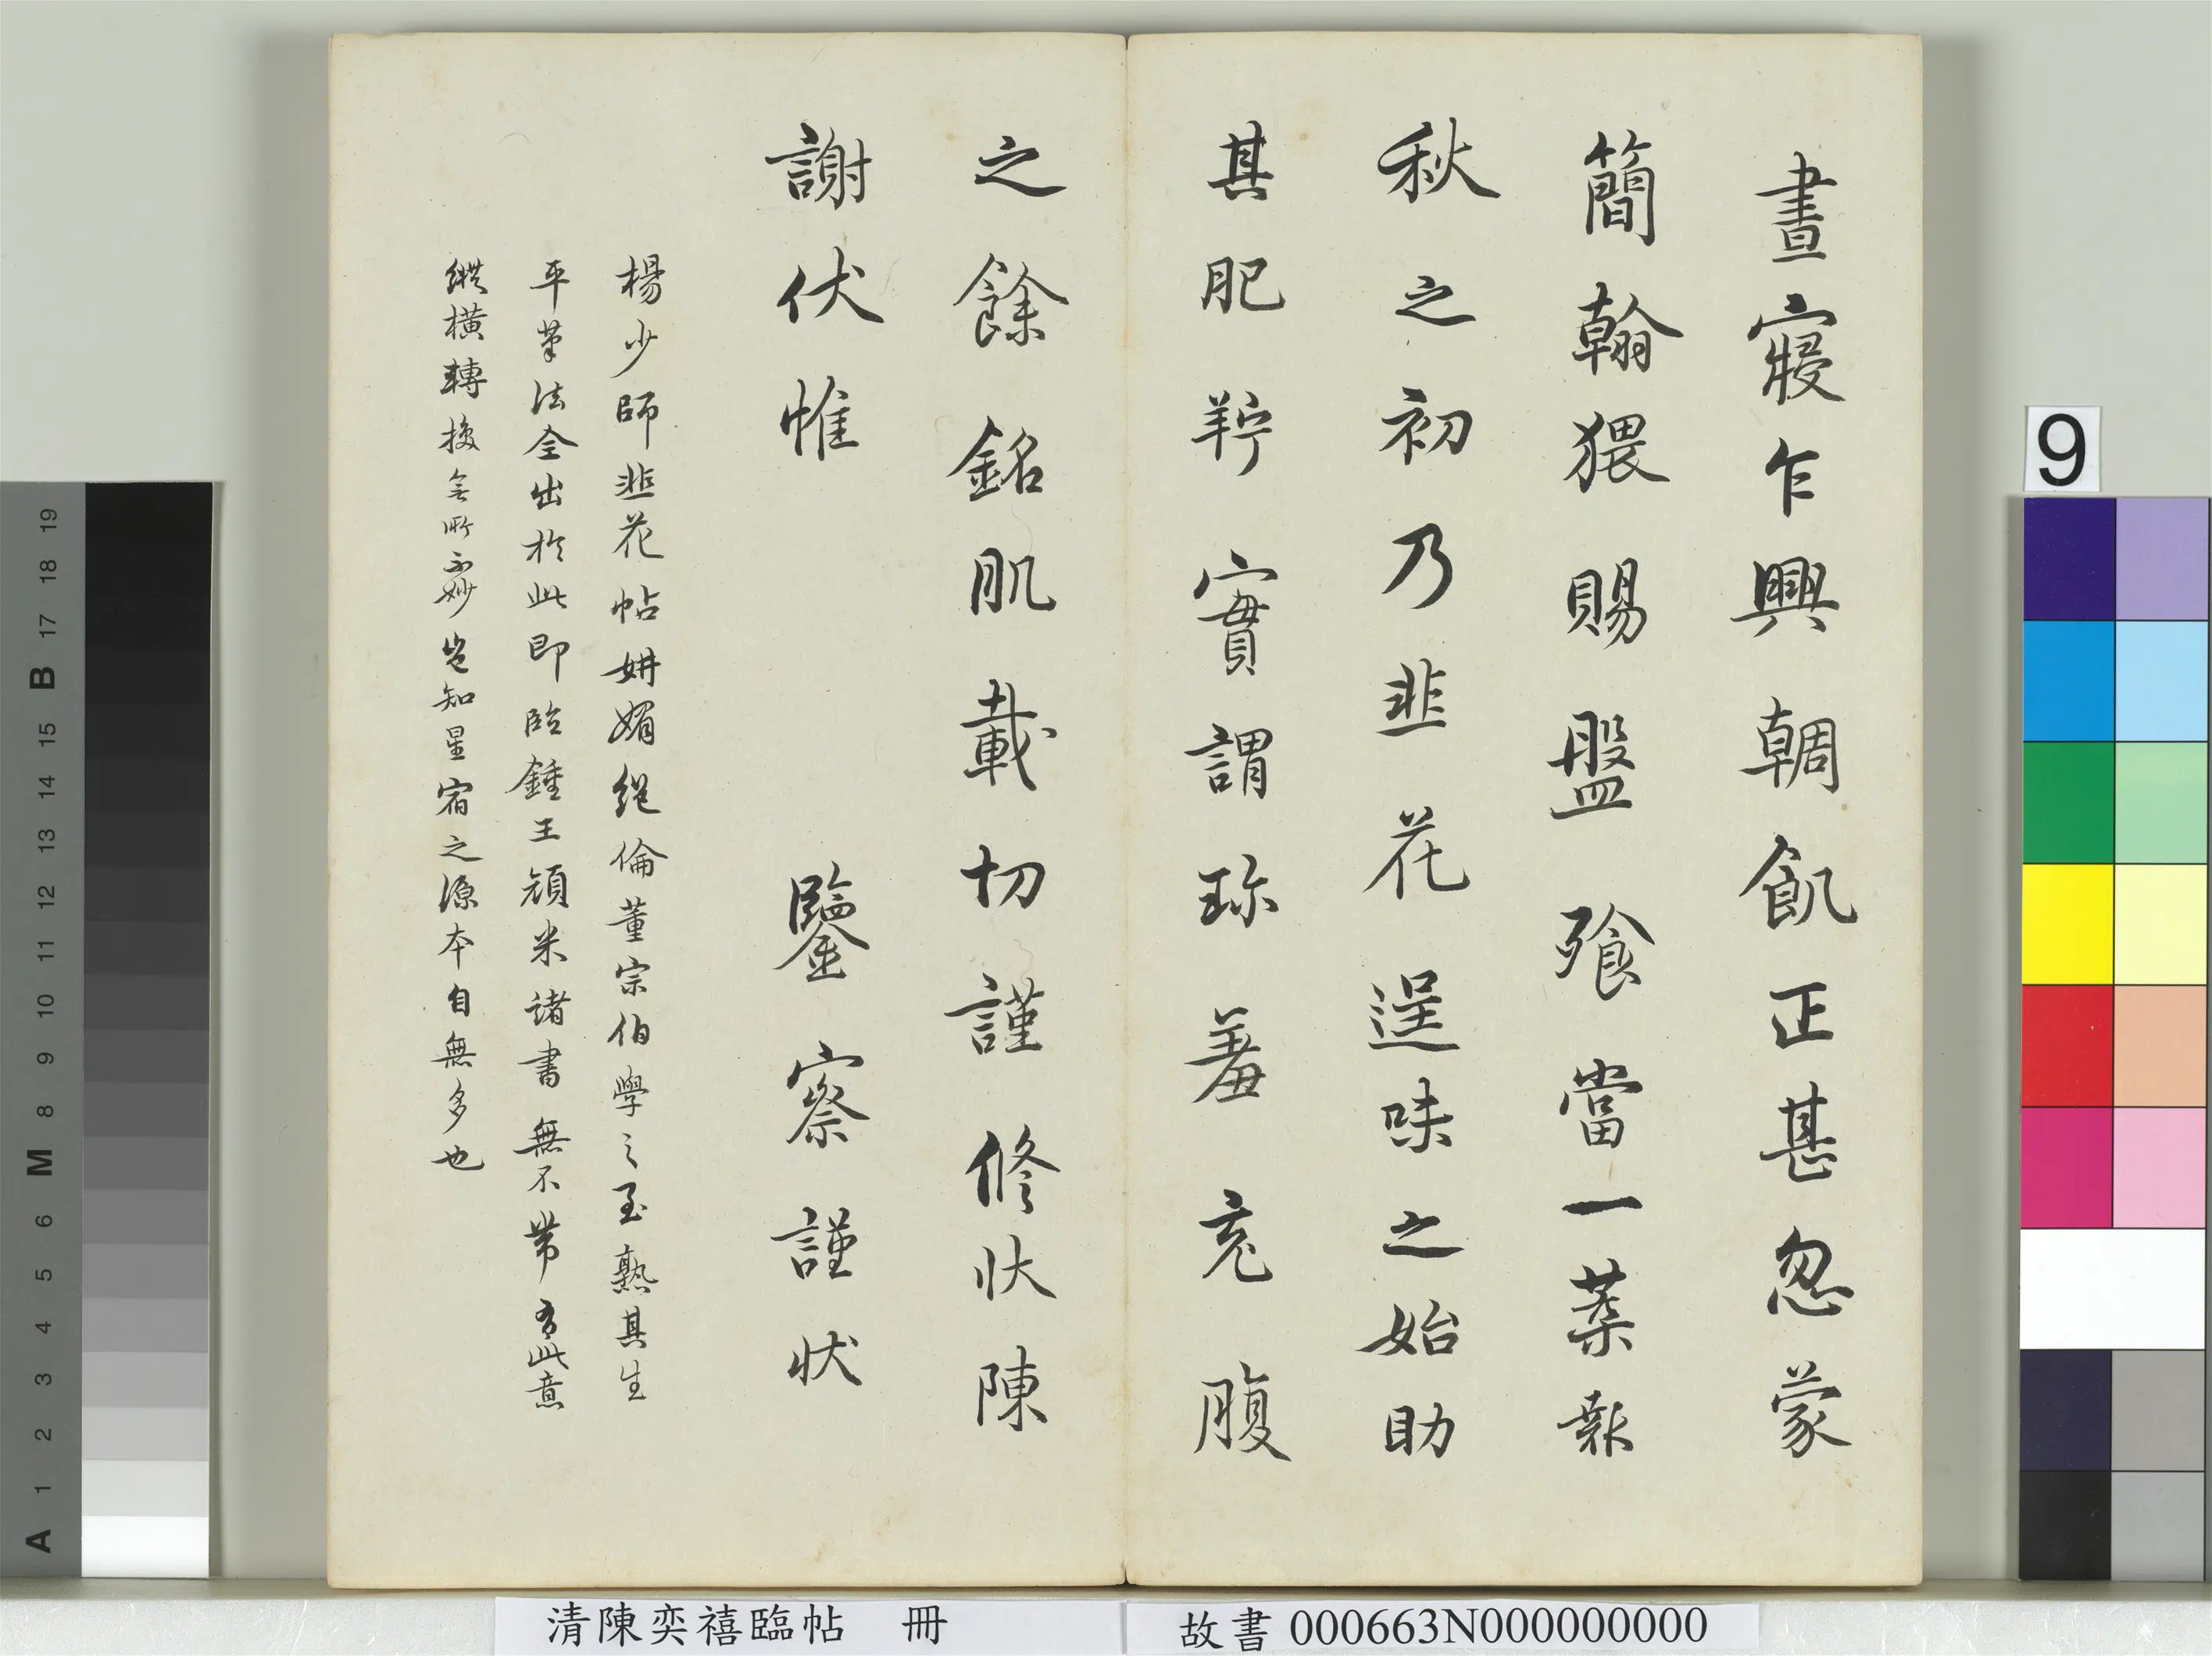 晝寢乍興輖飢正甚忽蒙
簡翰猥賜盤飧當一葉報
秋之初乃韭花逞味之始助
其肥羜實謂珎羞充腹
之餘銘肌載切謹修狀陳
謝伏惟 鑒察謹狀
楊少師韭花帖妍媚絕倫董宗伯學之至熟其生
平筆法全出於此即臨鍾王顏米諸書無不帶有此意
縱橫轉換無所不妙豈知星宿之源本自無多也
清陳奕禧臨帖 冊
故書 000663N000000000
9
A 1 2 3 4 5 6 M 8 9 10 11 12 13 14 15 B 17 18 19